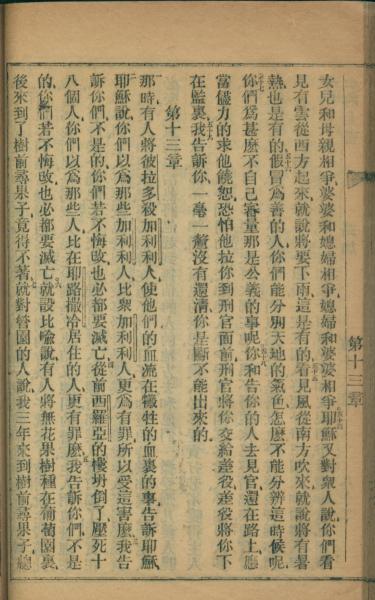 第十三章
女兒和母親相爭婆婆和媳婦相爭媳婦和婆婆相爭耶穌又對衆人說你們看
見有雲從西方起來就說將要下雨這是有的看見風從南方吹來就說將有暑
熱也是有的假冒爲善的人你們能分別天地的氣色怎麽不能分辨這時候呢
你們爲甚麽不自己審量那是公義的事呢你和告你的人去見官還在路上應
當儘力的求他饒恕恐怕他拉你到刑官面前刑官將你交給差役差役將你下
在監裏我告訴你一毫一釐沒有還清你是斷不能出來的
第十三章
那時有人將彼拉多殺加利利人使他們的血流在犧牲的血裏的事告訴耶穌
耶穌說你們以爲那些加利利人比衆加利利人更爲有罪所以受這害麽我告
訴你們不是的你們若不悔改也必都要滅亡從前西羅亞的樓坍倒了壓死十
八個人你們以爲那些人比在耶路撒冷居住的人更有罪麽我告訴你們不是
的你們若不悔改也必都要滅亡就設比喻說有人將無花果樹種在葡萄園裏
後來到了樹前尋果子竟得不著就對管園的人說我三年來到樹前尋果子總